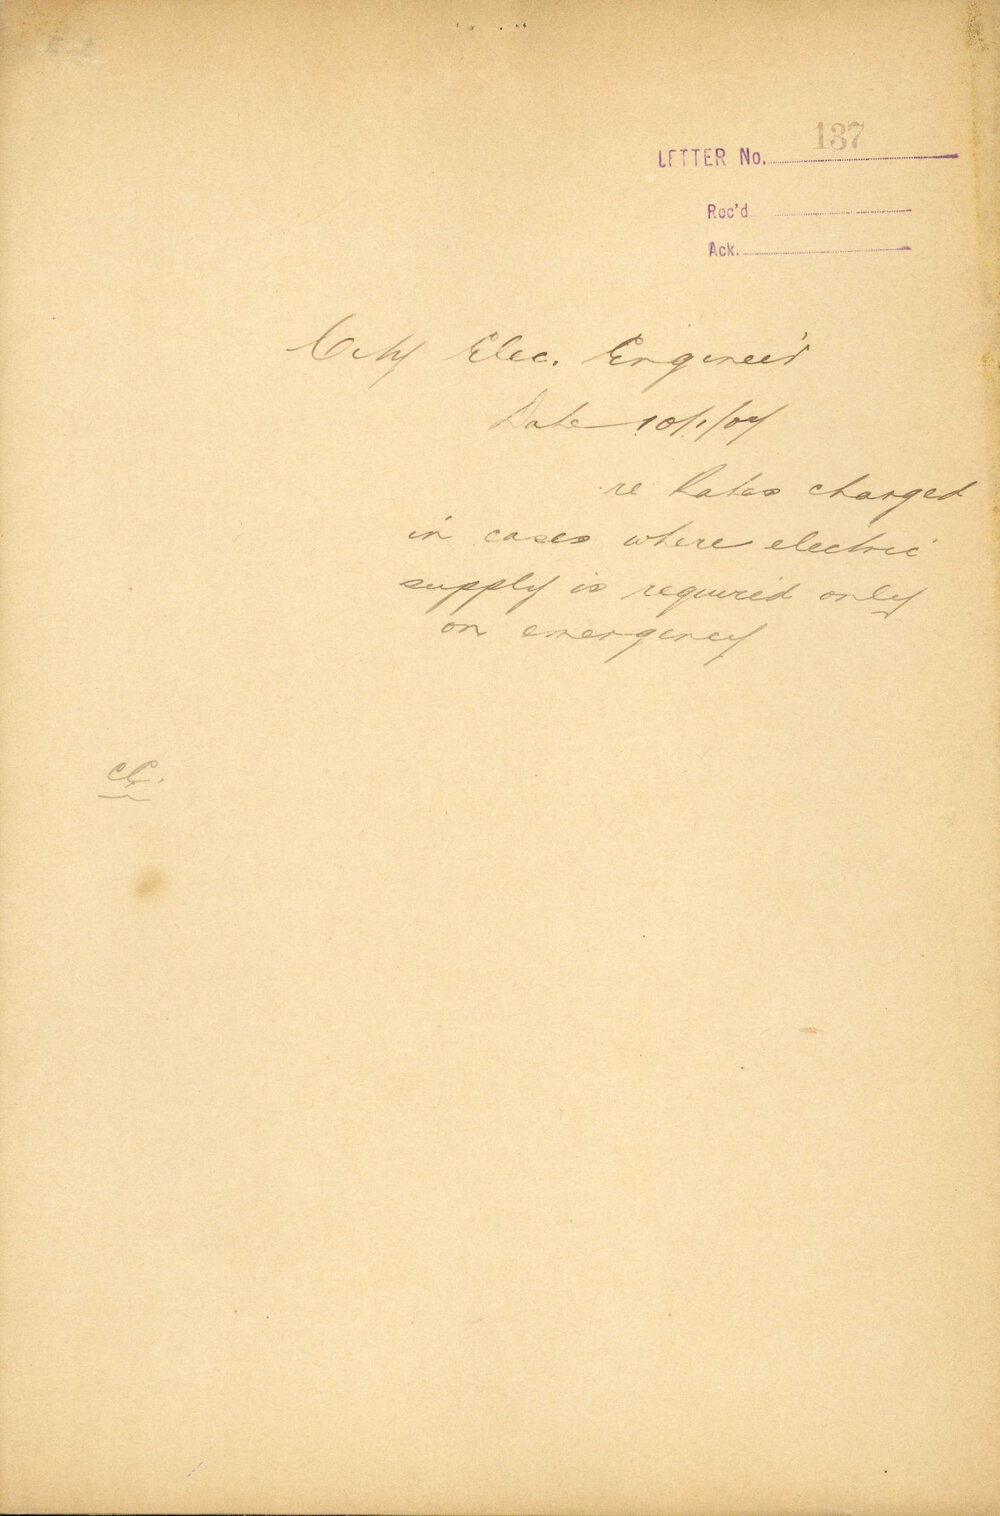 LETTER No. 137
Rec'd
Ack.
City Elec. Engineer
Date 10/1/07
re Rates charged
in cases where electric
supply is required only
on emergency